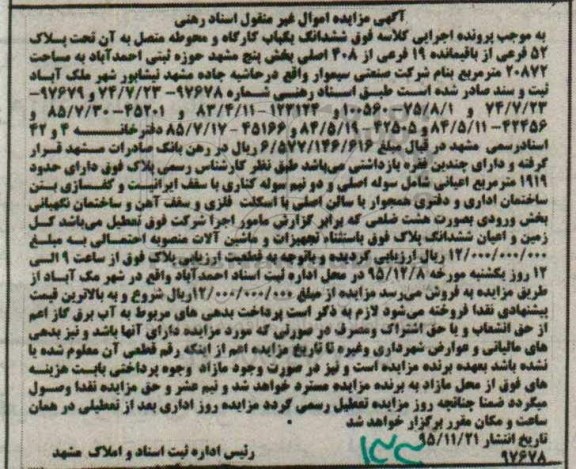 آگهی مزایده اموال غیر منقول اسناد رهنی
به موجب پرونده اجرایی کلاسه فوق ششدانگ یکباب کارگاه و محوطه متصل به آن تحت پلاک
۵۲ فرعی از باقیمانده ۱۹ فرعی از ۴۰۸ اصلی بخش پنج مشهد حوزه ثبتی احمدآباد به مساحت
۲۰۸۷۲ مترمربع بنام شرکت صنعتی سیموار واقع درحاشیه جاده مشهد نیشابور شهر ملک آباد
ثبت و سند صادر شده است طبق اسناد رهنی شماره ۹۷۶۷۸-۷۴/۷/۲۳ و ۹۷۶۷۹-
۷۴/۷/۲۳ و ۷۵/۸/۱-۱۰۰۵۶۰ و ۱۲۲۱۲۴-۸۳/۴/۱۱ و ۴۵۲۰۱-۸۵/۷/۳۰ و
۴۲۴۵۶-۸۴/۵/۱۱ و ۴۲۵۰۵-۸۴/۵/۱۹ و ۴۵۱۶۶-۸۵/۷/۱۷ دفترخانه ۴ و ۴۲
اسنادرسمی مشهد در قبال مبلغ ۶/۵۷۷/۱۴۶/۶۱۶ ریال در رهن بانک صادرات مشهد قرار
گرفته و دارای چندین فقره بازداشتی می‌باشد طبق نظر کارشناس رسمی پلاک فوق دارای حدود
۱۹۱۹ مترمربع اعیانی شامل سوله اصلی و دو نیم سوله کناری با سقف ایرانیت و کفسازی بتن
ساختمان اداری و دفتری همجوار با سالن اصلی با اسکلت فلزی و سقف آهن و ساختمان نگهبانی
بخش ورودی بصورت هشت ضلعی که برابر گزارش مامور اجرا شرکت فوق تعطیل می‌باشد کل
زمین و اعیان ششدانگ پلاک فوق باستثناء تجهیزات و ماشین آلات منصوبه احتمالی به مبلغ
۱۲/۰۰۰/۰۰۰/۰۰۰ ریال ارزیابی گردیده و باتوجه به قطعیت ارزیابی پلاک فوق از ساعت ۹ الی
۱۲ روز یکشنبه مورخه ۹۵/۱۲/۸ در محل اداره ثبت اسناد احمدآباد واقع در شهر مک آباد از
طریق مزایده به فروش می‌رسد مزایده از مبلغ ۱۲/۰۰۰/۰۰۰/۰۰۰ ریال شروع و به بالاترین قیمت
پیشنهادی نقدا فروخته می‌شود لازم به ذکر است پرداخت بدهی های مربوط به آب برق گاز اعم
از حق انشعاب و یا حق اشتراک ومصرف در صورتی که مورد مزایده دارای آنها باشد و نیز بدهی
های مالیاتی و عوارض شهرداری وغیره تا تاریخ مزایده اعم از اینکه رقم قطعی آن معلوم شده یا
نشده باشد بعهده برنده مزایده است و نیز در صورت وجود مازاد وجوه پرداختی بابت هزینه
های فوق از محل مازاد به برنده مزایده مسترد خواهد شد و نیم عشر و حق مزایده نقدا وصول
میگردد ضمنا چنانچه روز مزایده تعطیل رسمی گردد مزایده روز اداری بعد از تعطیلی در همان
ساعت و مکان مقرر برگزار خواهد شد
تاریخ انتشار ۹۵/۱۱/۲۱
۹۷۶۷۸ رئیس اداره ثبت اسناد و املاک مشهد